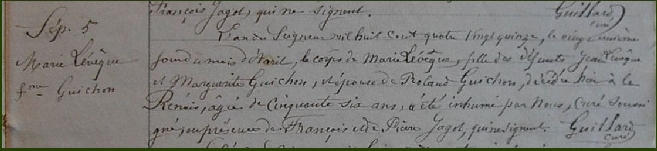 François Jagot, qui ne signent. Guillard
curé
Sép. 5 L'an du Seigneur mil huit cent quatre vingt quinze, le vingt
Marie Lévêque jour du mois d'Avril, le corps de Marie Lévêque, fille des défunts Jean Lévêque
fme Guichon et Marguerite Guichon, et épouse de Roland Guichon, décédée hier à le
âgée de Cinquante six ans, a été inhumé par Nous, Curé soussi
gné en présence de François et de Pierre Jagot, qui ne signent. Guillard
curé